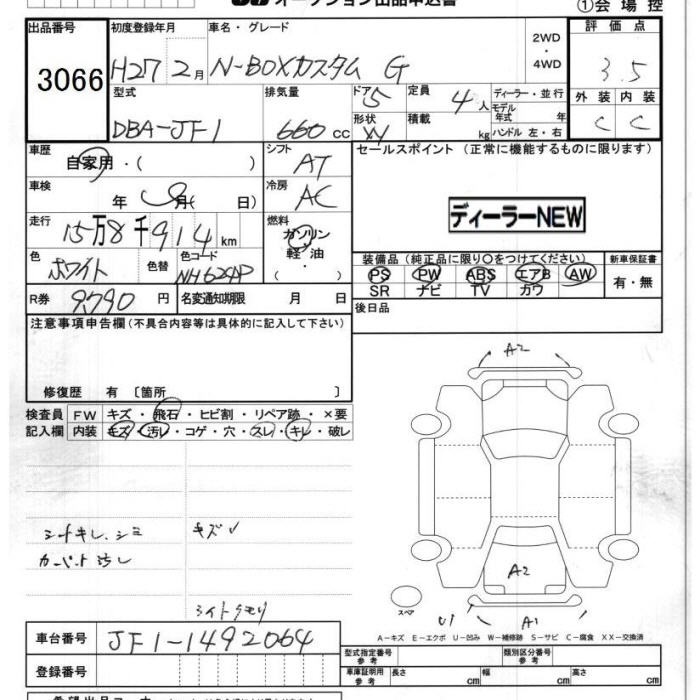 オークション出品申込書
①会場控
出品番号 初度登録年月 車名・グレード 2WD・4WD 評価点
3066 H27 2月 N-BOXカスタム G 3.5
型式 排気量 ドア 5 定員 4人 ディーラー・並行 外装 内装
DBA-JF1 660cc 形状 W 積載 kg モデル年式 年 ハンドル 左・右 C C
車歴 自家用・( ) シフト AT セールスポイント (正常に機能するものに限ります)
車検 年 月( 日) 冷房 AC
ディーラーNEW
走行 15万8千914km 燃料 ガソリン・軽油・( )
色 ホワイト 色替 色コード NH624P
装備品 (純正品に限り○をつけてください) 新車保証書
PS PW ABS エアB AW 有・無
SR ナビ TV カワ
R券 9,790円 名変通知期限 月 日
後日品
注意事項申告欄(不具合内容等は具体的に記入して下さい)
修復歴 有 〔箇所 〕
検査員 FW キズ・飛石・ヒビ割・リペア跡・×要
記入欄 内装 キズ・汚レ・コゲ・穴・スレ・キレ・破レ
A2
シートキレ、シミ キズレ
カーペット汚レ
A2
スペア
U1 A1
ライトクモリ
A-キズ E-エクボ U-凹み W-補修跡 S-サビ C-腐食 XX-交換済
車台番号 JF1-1492064
型式指定番号 参考 類別区分番号 参考
登録番号 車庫証明用 参考 長さ cm 幅 cm 高さ cm